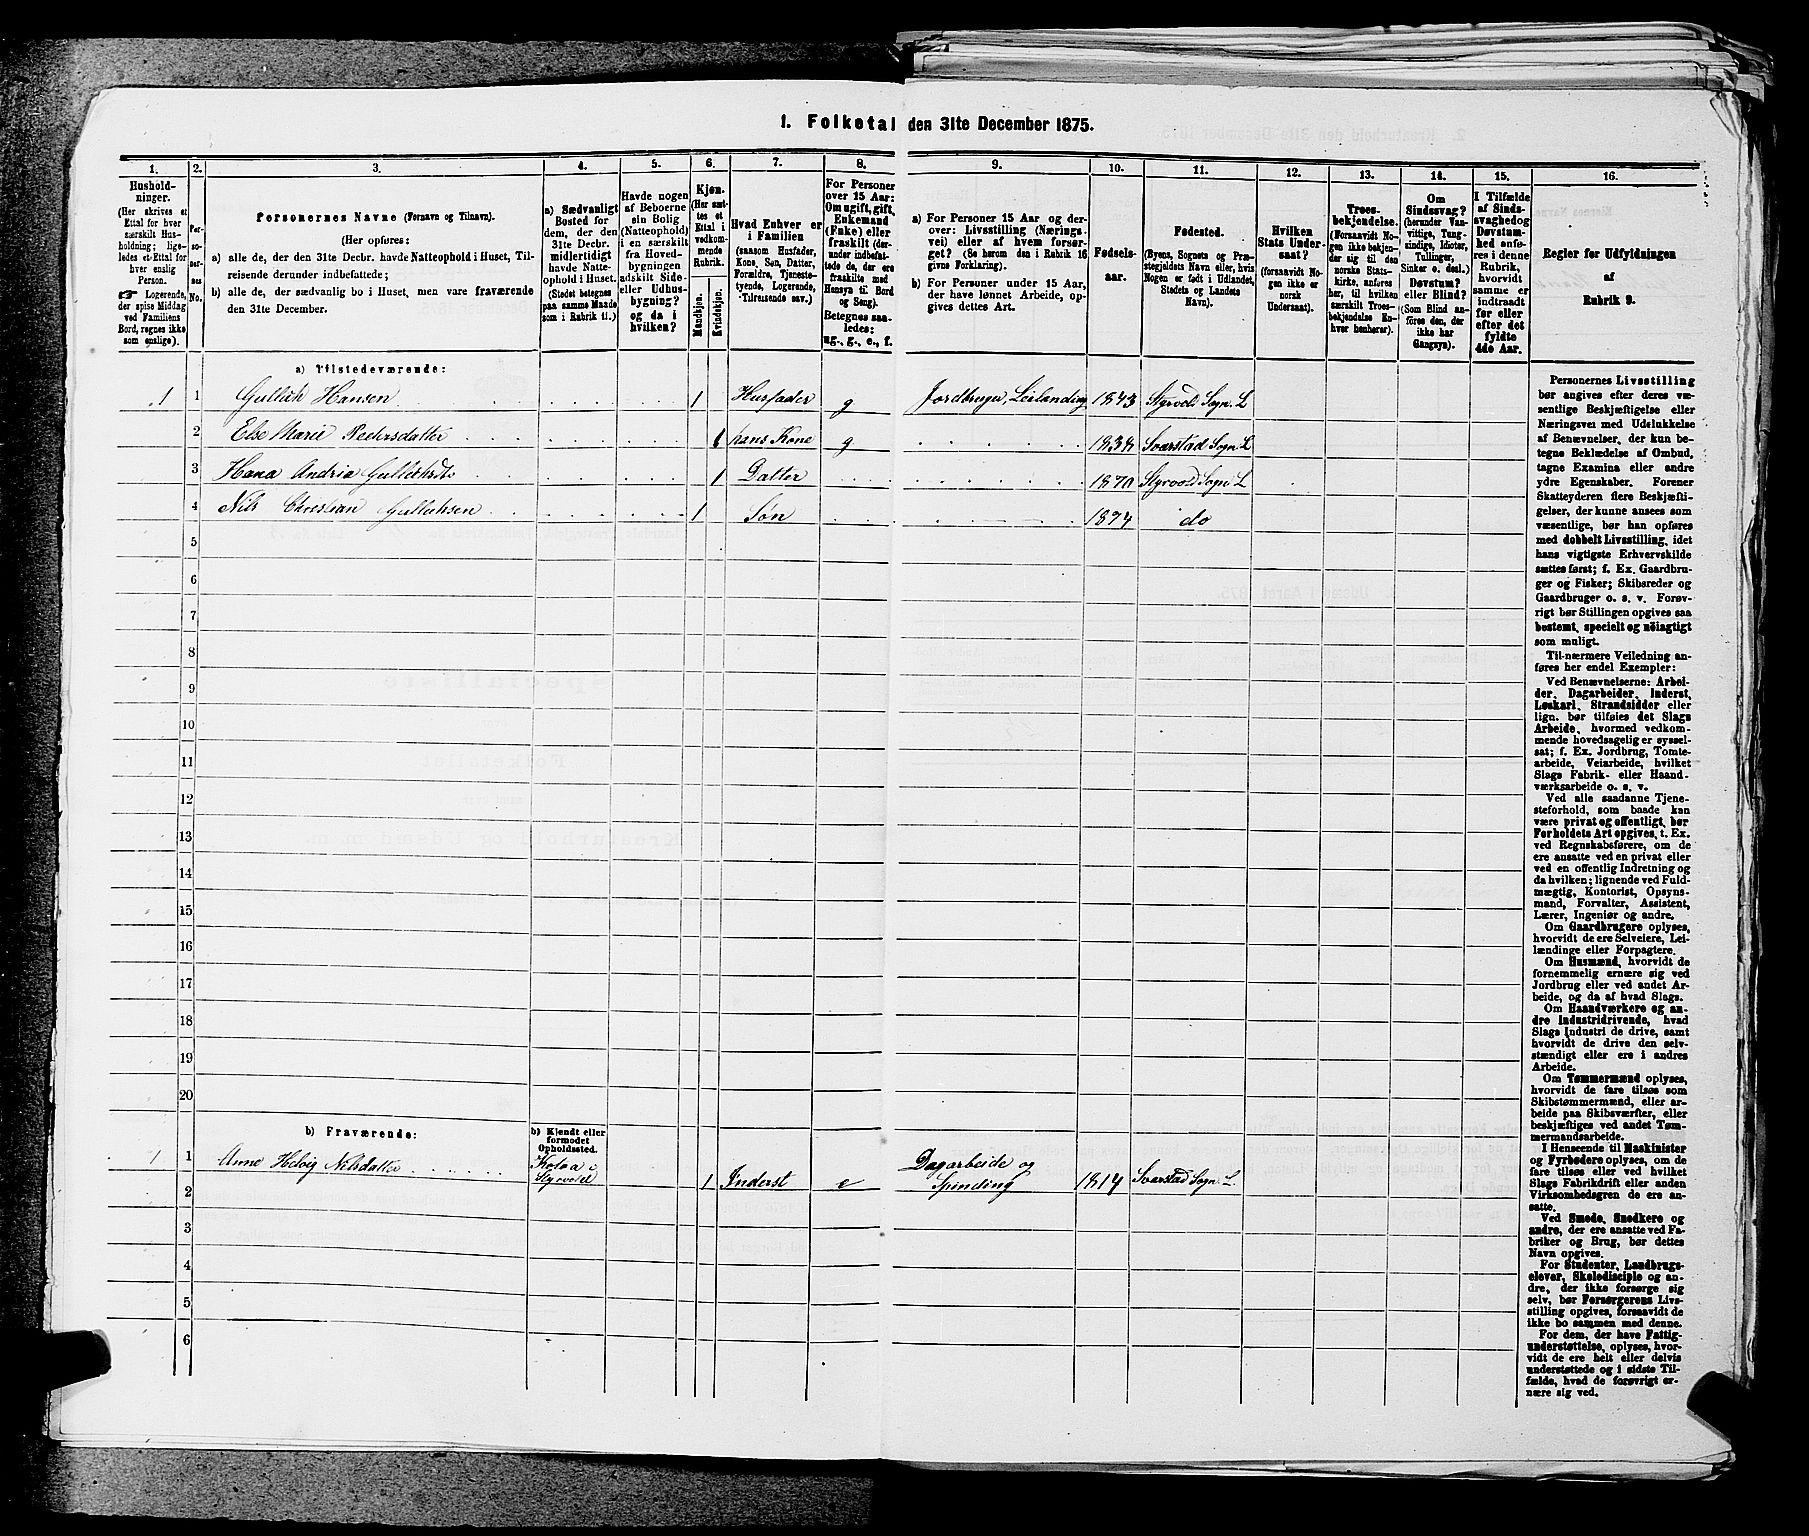 1. Folketal den 31te December 1875.
1. 2. 3. 4. 5. 6. 7. 8. 9. 10. 11. 12. 13. 14. 15. 16.
Hushold-
ninger.
(Her skrives et
Ettal for hver
særskilt Hus-
holdning; lige-
ledes et Ettal for
hver enslig
Person.
☞ Logerende,
der spise Middag
ved Familiens
Bord, regnes ikke
som enslige).
Per-
so-
ner-
nes
No.
Personernes Navne (Fornavn og Tilnavn).
(Her opføres:
a) alle de, der den 31te Decbr. havde Natteophold i Huset, Til-
reisende derunder indbefattede;
b) alle de, der sædvanlig bo i Huset, men vare fraværende
den 31te December.
a) Sædvanligt
Bosted for
dem, der den
31te Decbr.
midlertidigt
havde Natte-
ophold i Huset.
(Stedet betegnes
paa samme Maade
som i Rubrik 11.)
Havde nogen
af Beboerne
sin Bolig
(Natteophold)
i en særskilt
fra Hoved-
bygningen
adskilt Side-
eller Udhus-
bygning?
og da i
hvilken?
Kjøn.
(Her sæt-
tes et
Ettal i
vedkom-
mende
Rubrik.
Mandkjøn.
Kvindekjøn.
Hvad Enhver er
i Familien
(saasom Husfader,
Kone, Søn, Datter,
Forældre, Tjeneste-
tyende, Logerende,
Tilreisende osv.)
For Personer
over 15 Aar:
Om ugift, gift,
Enkemand
(Enke) eller
fraskilt (der-
under indbefat-
tede de, der ere
fraskilte med
Hensyn til Bord
og Seng).
Betegnes saa-
ledes:
ug., g., e., f.
a) For Personer 15 Aar og der-
over: Livsstilling (Nærings-
vei) eller af hvem forsør-
get? (Se herom den i Rubrik 16
givne Forklaring).
b) For Personer under 15 Aar,
der have lønnet Arbeide, op-
gives dettes Art.
Fødsels-
aar.
Fødested.
(Byens, Sognets og Præ-
stegjeldets Navn eller, hvis
Nogen er født i Udlandet,
Stedets og Landets
Navn).
Hvilken
Stats Under-
saat?
(forsaavidt No-
gen ikke er
norsk
Undersaat).
Troes-
bekjendelse.
(Forsaavidt No-
gen ikke bekjen-
der sig til den
norske Stats-
kirke, anføres
her, til hvilken
særskilt Troes-
bekjendelse En-
hver henhører).
Om
Sindssvag?
(herunder Van-
vittige, Tung-
sindige, Idioter,
Tullinger,
Sinker o. desl.)
Døvstum?
eller Blind?
(Som Blind an-
føres den, der
ikke har
Gangsyn).
I Tilfælde
af Sinds-
svaghed og
Døvstum-
hed anfø-
res i denne
Rubrik,
hvorvidt
samme er
indtraadt
før eller
efter det
fyldte
4de Aar.
Regler for Udfyldningen
af
Rubrik 9.
a) Tilstedeværende:
1 1 Gullich Hansen 1 Husfader g Jordbruger, Leilænding 1843 Styrvold Sogn L
2 Else Marie Pedersdatter 1 hans Kone g 1838 Svarstad Sogn L
3 Hana Andria Gullichsdtr 1 Datter 1870 Styrvold Sogn L
4 Nils Christian Gullichsen 1 Søn 1874 do
5
6
7
8
9
10
11
12
13
14
15
16
17
18
19
20
b) Fraværende:
b) Kjendt eller
formodet
Opholdssted.
1 1 Anne Helvig Nilsdatter 1 Inderst e Dagarbeide og
Spinding 1814 Svarstad Sogn L
2
3
4
5
6
Personernes Livsstilling
bør angives efter deres væ-
sentlige Beskjæftigelse eller
Næringsvei med Udelukkelse
af Benævnelser, der kun be-
tegne Beklædelse af Ombud,
tagne Examina eller andre
ydre Egenskaber. Forener
Skatteyderen flere Beskjæfti-
gelser, der kunne ansees som
væsentlige, bør han opføres
med dobbelt Livsstilling, idet
hans vigtigste Erhvervskilde
sættes først; f. Ex. Gaardbru-
ger og Fisker; Skibsreder og
Gaardbruger o. s. v. Forøv-
rigt bør Stillingen opgives saa
bestemt, specielt og nøiagtigt
som muligt.
Til nærmere Veiledning an-
føres her endel Exempler:
Ved Benævnelserne: Arbei-
der, Dagarbeider, Inderst,
Løskarl, Strandsidder eller
lign. bør tilføies det Slags
Arbeide, hvormed vedkom-
mende hovedsagelig er syssel-
sat; f. Ex. Jordbrug, Tomte-
arbeide, Veiarbeide, hvilket
Slags Fabrik- eller Haand-
værksarbeide o. s. v.
Ved alle saadanne Tjene-
steforhold, som baade kan
være privat og offentligt, bør
Forholdets Art opgives, t. Ex.
ved Regnskabsførere, om de
ere ansatte ved en privat eller
ved en offentlig Indretning og
da hvilken; lignende ved Fuld-
mægtig, Kontorist, Opsyns-
mand, Forvalter, Assistent,
Lærer, Ingeniør og andre.
Om Gaardbrugere oplyses,
hvorvidt de ere Selveiere, Lei-
lændinge eller Forpagtere.
Om Husmænd, hvorvidt de
fornemmelig ernære sig ved
Jordbrug eller ved andet Ar-
beide, og da af hvad Slags.
Om Haandværkere og an-
dre Industridrivende, hvad
Slags Industri de drive, samt
hvorvidt de drive den selv-
stændigt eller ere i andres
Arbeide.
Om Tømmermænd oplyses,
hvorvidt de fare tilsøs som
Skibstømmermænd, eller ar-
beide paa Skibsværfter, eller
beskjæftiges ved andet Tøm-
mermandsarbeide.
I Henseende til Maskinister
og Fyrbødere oplyses, om de
fare tilsøs eller ved hvilket
Slags Fabrikdrift eller anden
Virksomhedsgren de ere an-
satte.
Ved Smede, Snedkere og
andre, der ere ansatte ved Fa-
briker og Brug, bør dettes
Navn opgives.
For Studenter, Landbrugs-
elever, Skoledisciple og an-
dre, der ikke forsørge sig
selv, bør Forsørgerens Livs-
stilling opgives, forsaavidt de
ikke bo sammen med denne.
For dem, der have Fattig-
understøttelse, oplyses, hvor-
vidt de ere helt eller delvis
understøttede og i sidste Til-
fælde, hvad de forøvrigt er-
nære sig ved.